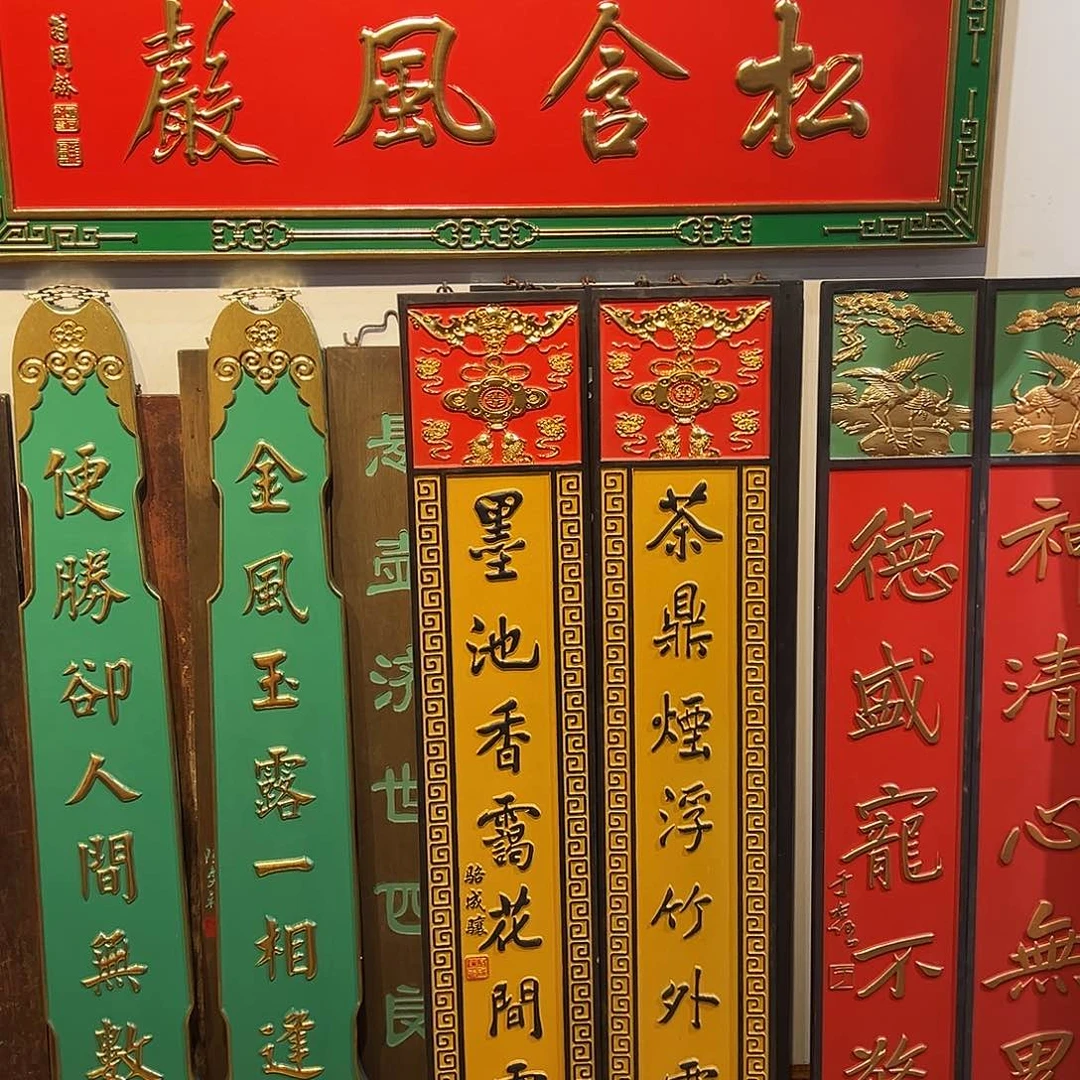 松含風嚴
翁同龢
神清心無
德盛寵不
茶鼎煙浮竹外
墨池香靄花間
駱成驤
世
金風玉露一相逢
便勝卻人間無數